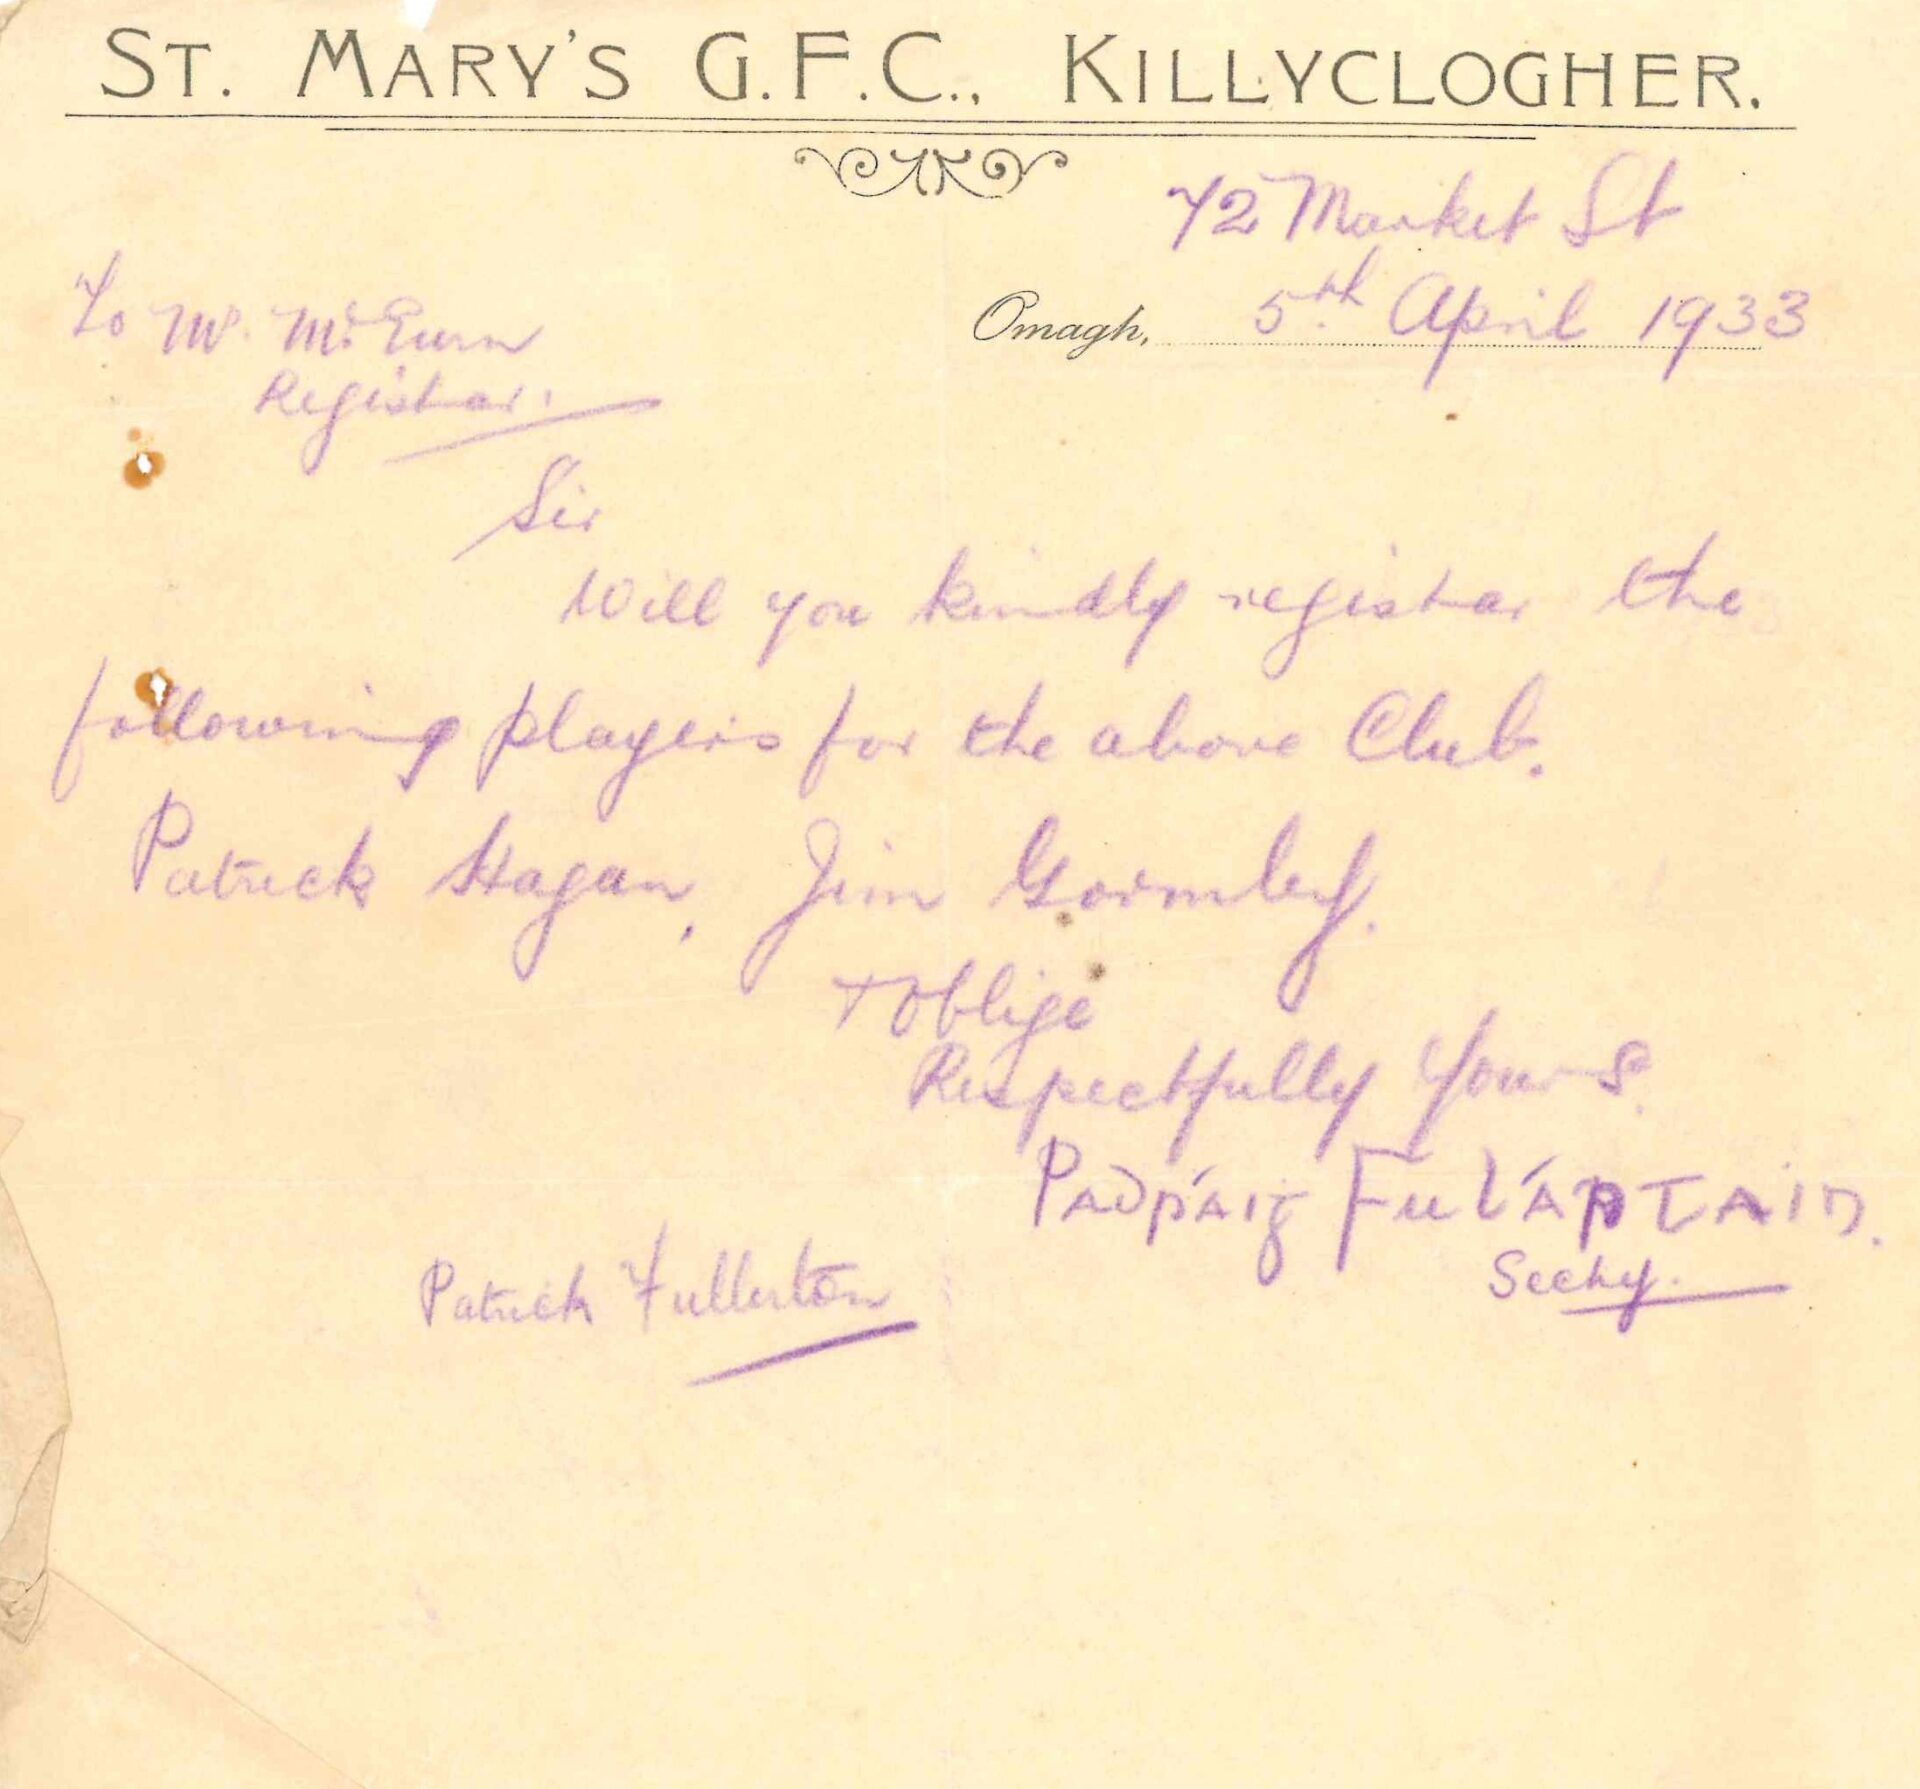 ST. MARY'S G.F.C., KILLYCLOGHER.
72 Market St
Omagh, 5th April 1933
To Mr. McEurn
Registrar.
Sir
Will you kindly registrar the
following players for the above Club.
Patrick Hagan, Jim Gormley.
+ Oblige
Respectfully Yours.
Pádraig
Secty.
Patrick Fullerton